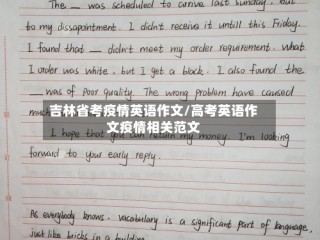 The ___ was scheduled to arrive last Sunday, but
to my dissapointment, I didn't receive it untill this Friday.
I found that ___ didn't meet my order requirement. What
I order was white, but I get a black. I also found the
___ was of Poor quality. The wrong problem have caused
吉林省考疫情英语作文/高考英语作
文疫情相关范文
I hope that you can return my money. I'm looking
forward to your early reply.
As everybody knows, vocabulary is a significant part of language,
just like bricks in a building.